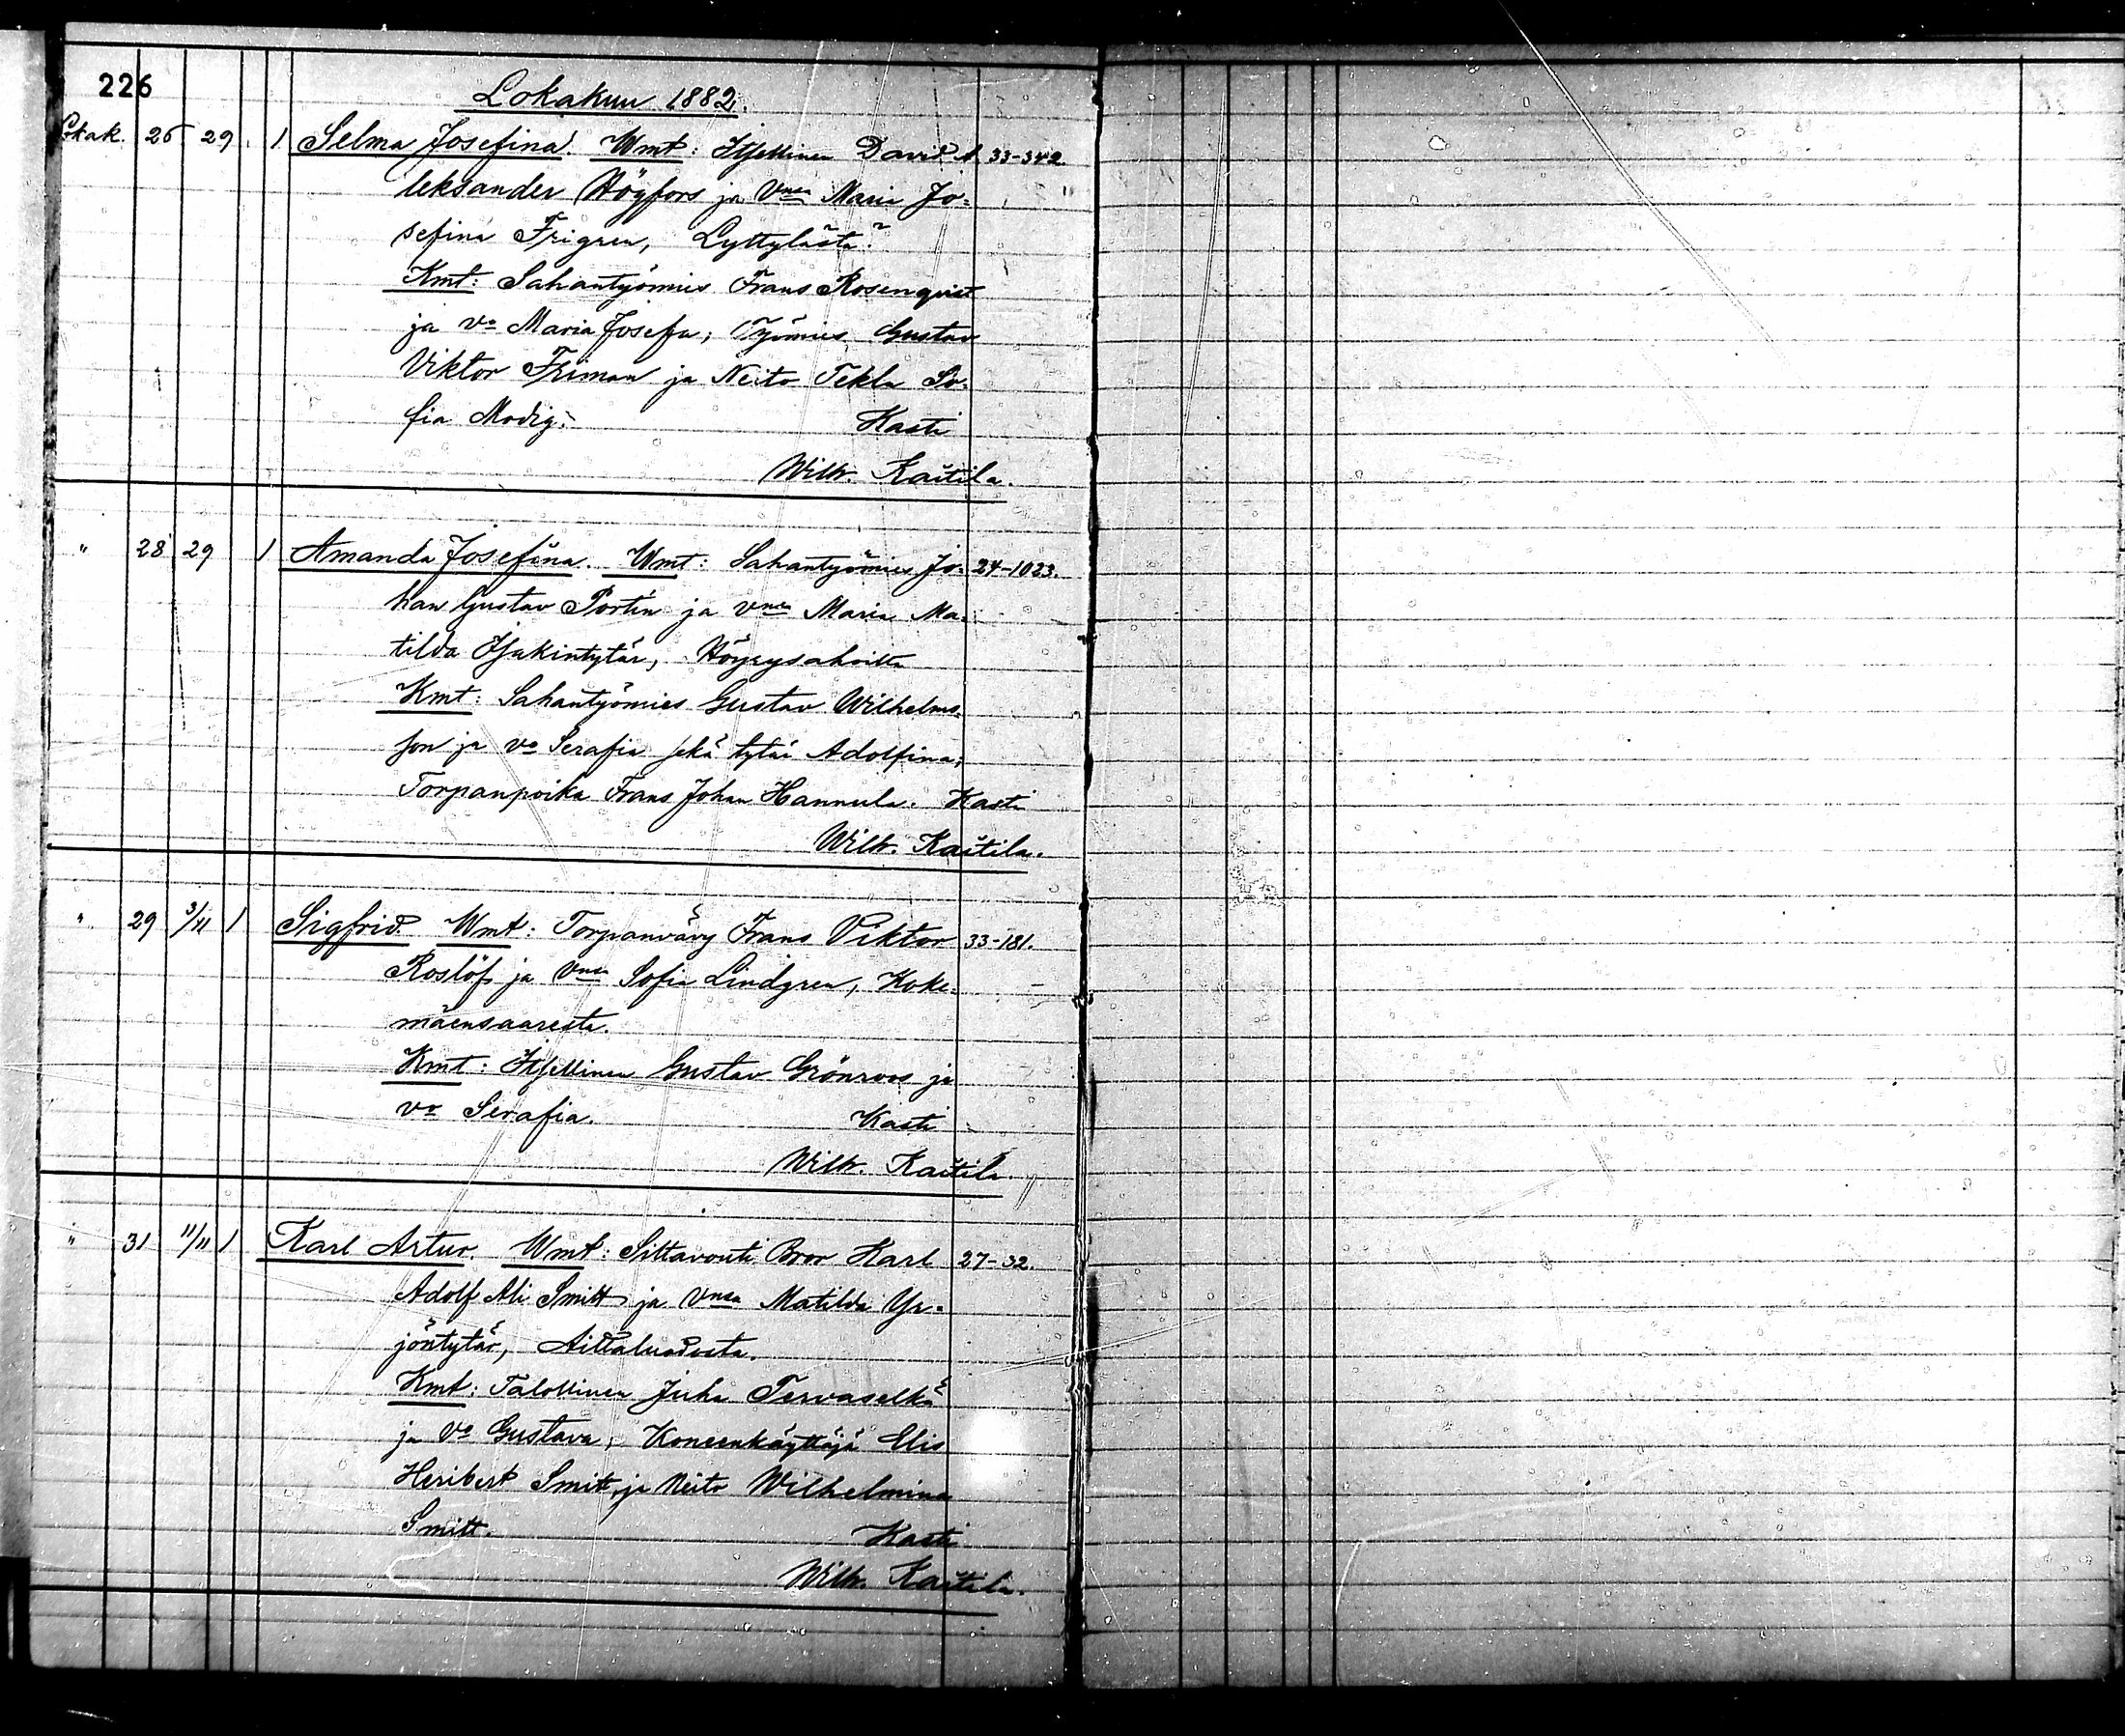 226
Lokakuu 1882.
Lokak. 26 29. 1 Selma Josefina. Wmt: Itsellinen David A 33-342.
leksander Högfors ja Vmsa Maria Jo-
sefina Frigren, Lyttylästä.
Kmt: Sahantyömies Frans Rosenqvist
ja Vo Maria Josefa; Työmies Gustav
Viktor Friman ja Neito Tekla So-
fia Modig. Kasti
Wilh. Kaitila.
" 28 29 1 Amanda Josefina. Wmt: Sahantyömies Jo- 24-1023.
han Gustav Portin ja Vmsa Maria Ma-
tilda Isakintytär, Höyrysahoilta
Kmt: Sahantyömies Gustav Wilhelms-
son ja Vo Serafia sekä tytär Adolfina;
Torpanpoika Frans Johan Hannula. Kasti
Wilh. Kaitila.
" 29 3/11 1 Sigfrid. Wmt: Torpanvävy Frans Viktor 33-181.
Roslöf ja Vmsa Sofia Lindgren, Koke-
mäensaaresta.
Kmt: Itsellinen Gustav Grönroos ja
Vo Serafia. Kasti
Wilh. Kaitila.
" 31 11/11 1 Karl Artur. Wmt: Siltavouti Bror Karl 27-32.
Adolf Ali Smitt ja Vmsa Matilda Yr-
jöntytär, Aittaluodosta.
Kmt: Talollinen Juha Tervaselkä
ja Vo Gustava; Koneenkäyttäjä Elis
Heribert Smitt, ja Neito Wilhelmina
Smitt. Kasti
Wilh. Kaitila.